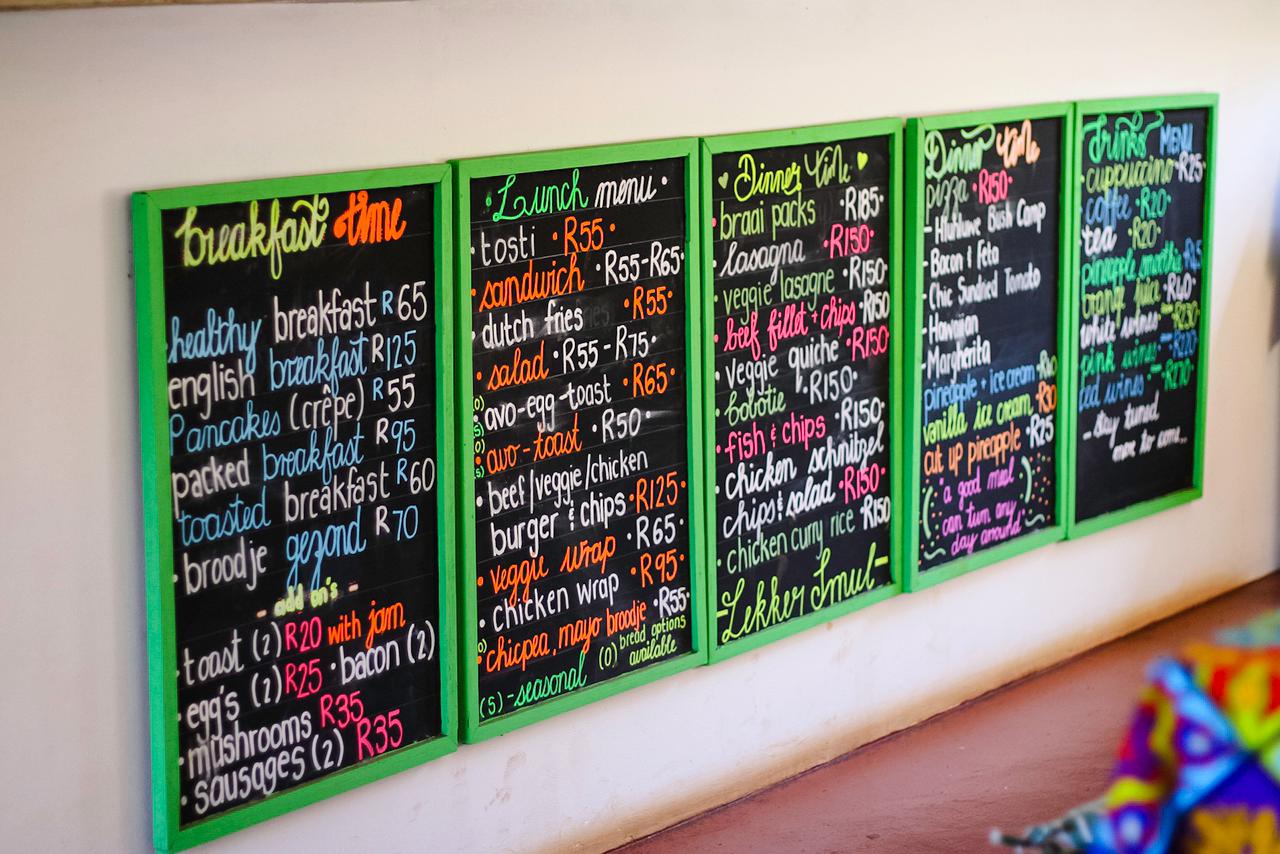 breakfast time
healthy breakfast R65
english breakfast R125
Pancakes (crêpe) R55
packed breakfast R95
toasted breakfast R60
· broodje gezond R70
- add on's -
· toast (2) R20 with jam
· egg's (2) R25 · bacon (2)
· mushrooms R35
· sausages (2) R35
Lunch menu ·
· tosti · R55 ·
· sandwich · R55-R65 ·
· dutch fries R55 ·
· salad · R55 - R75 ·
· avo-egg-toast · R65 ·
· avo-toast · R50 ·
· beef/veggie/chicken
burger & chips · R125 ·
· veggie wrap · R65 ·
· chicken wrap · R95 ·
· chicpea, mayo broodje · R55 ·
(S) -seasonal (O) bread options
available
Dinner time
· braai packs · R185 ·
· lasagna · R150 ·
· veggie lasagne · R150 ·
· beef fillet + chips · R150
· veggie quiche · R150 ·
· bobotie · R150 ·
· fish & chips · R150 ·
· chicken schnitzel
chips & salad · R150 ·
· chicken curry rice · R150
-Lekker Smul-
Dinner time
pizza · R150 ·
- Hluhluwe Bush Camp
- Bacon & Feta
- Chic Sundried Tomato
- Hawaiian
- Margherita
pineapple + ice cream
vanilla ice cream · R30
cut up pineapple · R25
"a good meal
can turn any
day around"
Drinks MENU
cappuccino · R25 ·
coffee · R20 ·
tea · R20 ·
pineapple
orange juice · R40 ·
white wines
pink wines
red wines
- stay tuned
more to come...